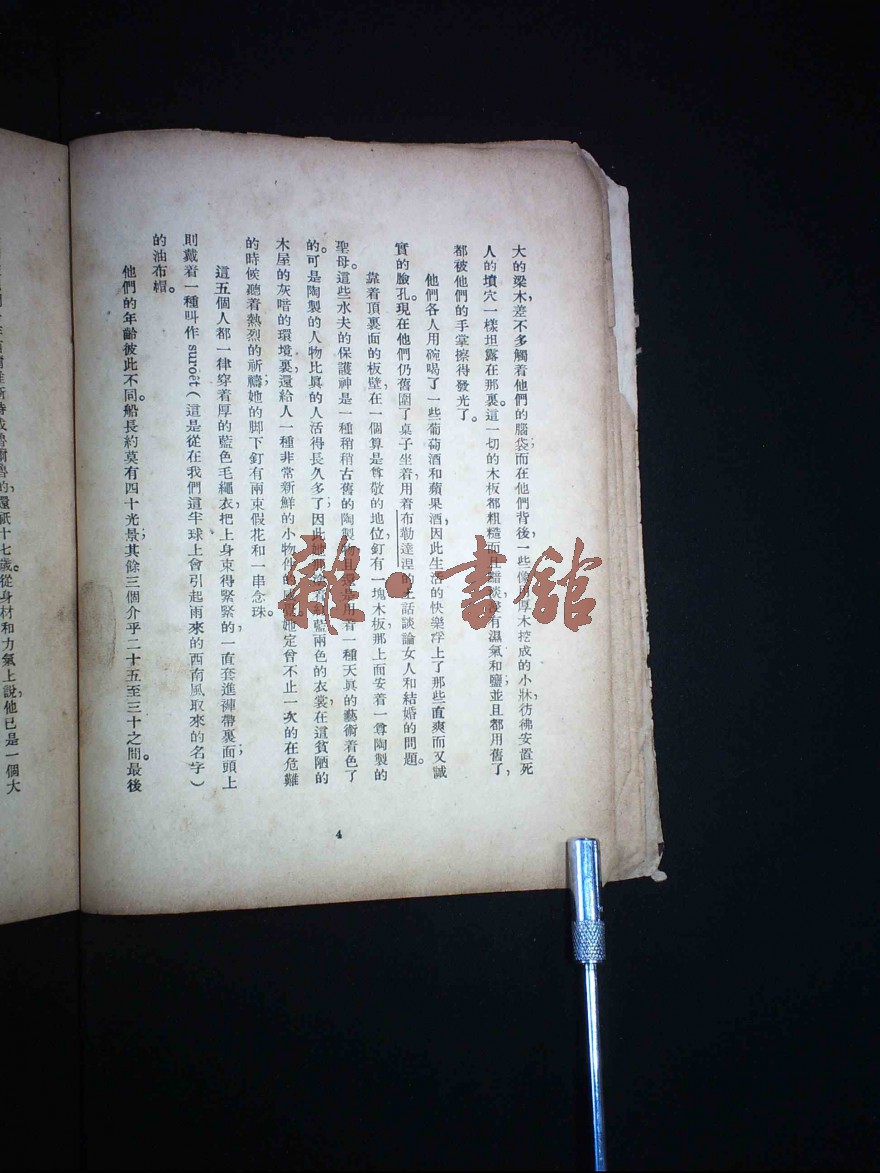 大的梁木，差不多觸着他們的腦袋；而在他們背後，一些像用厚木挖成的小牀，彷彿安置死
人的墳穴一樣坦露在那裏。這一切的木板都粗糙而且黯淡，受有濕氣和鹽，並且都用舊了，
都被他們的手掌擦得發光了。
他們各人用碗喝了一些葡萄酒和蘋果酒，因此生活的快樂浮上了那些直爽而又誠
實的臉孔。現在他們仍舊圍了桌子坐着，用着布勒達涅的土話談論女人和結婚的問題。
靠着頂裏面的板壁，在一個算是尊敬的地位，釘有一塊木板，那上面安着一尊陶製的
聖母。這些水夫的保護神是一種稍稍古舊的陶製物，且還是用着一種天真的藝術着色了
的。可是陶製的人物比真的人活得長久多了；因此她那塗着紅藍兩色的衣裳，在這貧陋的
木屋的灰暗的環境裏，還給人一種非常新鮮的小物件的感覺。她定曾不止一次的在危難
的時候聽着熱烈的祈禱；她的脚下釘有兩束假花和一串念珠。
這五個人都一律穿着厚的藍色毛繩衣，把上身束得緊緊的，一直套進褲帶裏面；頭上
則戴着一種叫作suroët（這是從在我們這半球上會引起雨來的西南風取來的名字）
的油布帽。
他們的年齡彼此不同。船長約莫有四十光景；其餘三個介乎二十五至三十之間。最後
4
的，還祇十七歲。從身材和力氣上說，他已是一個大
雜·書館